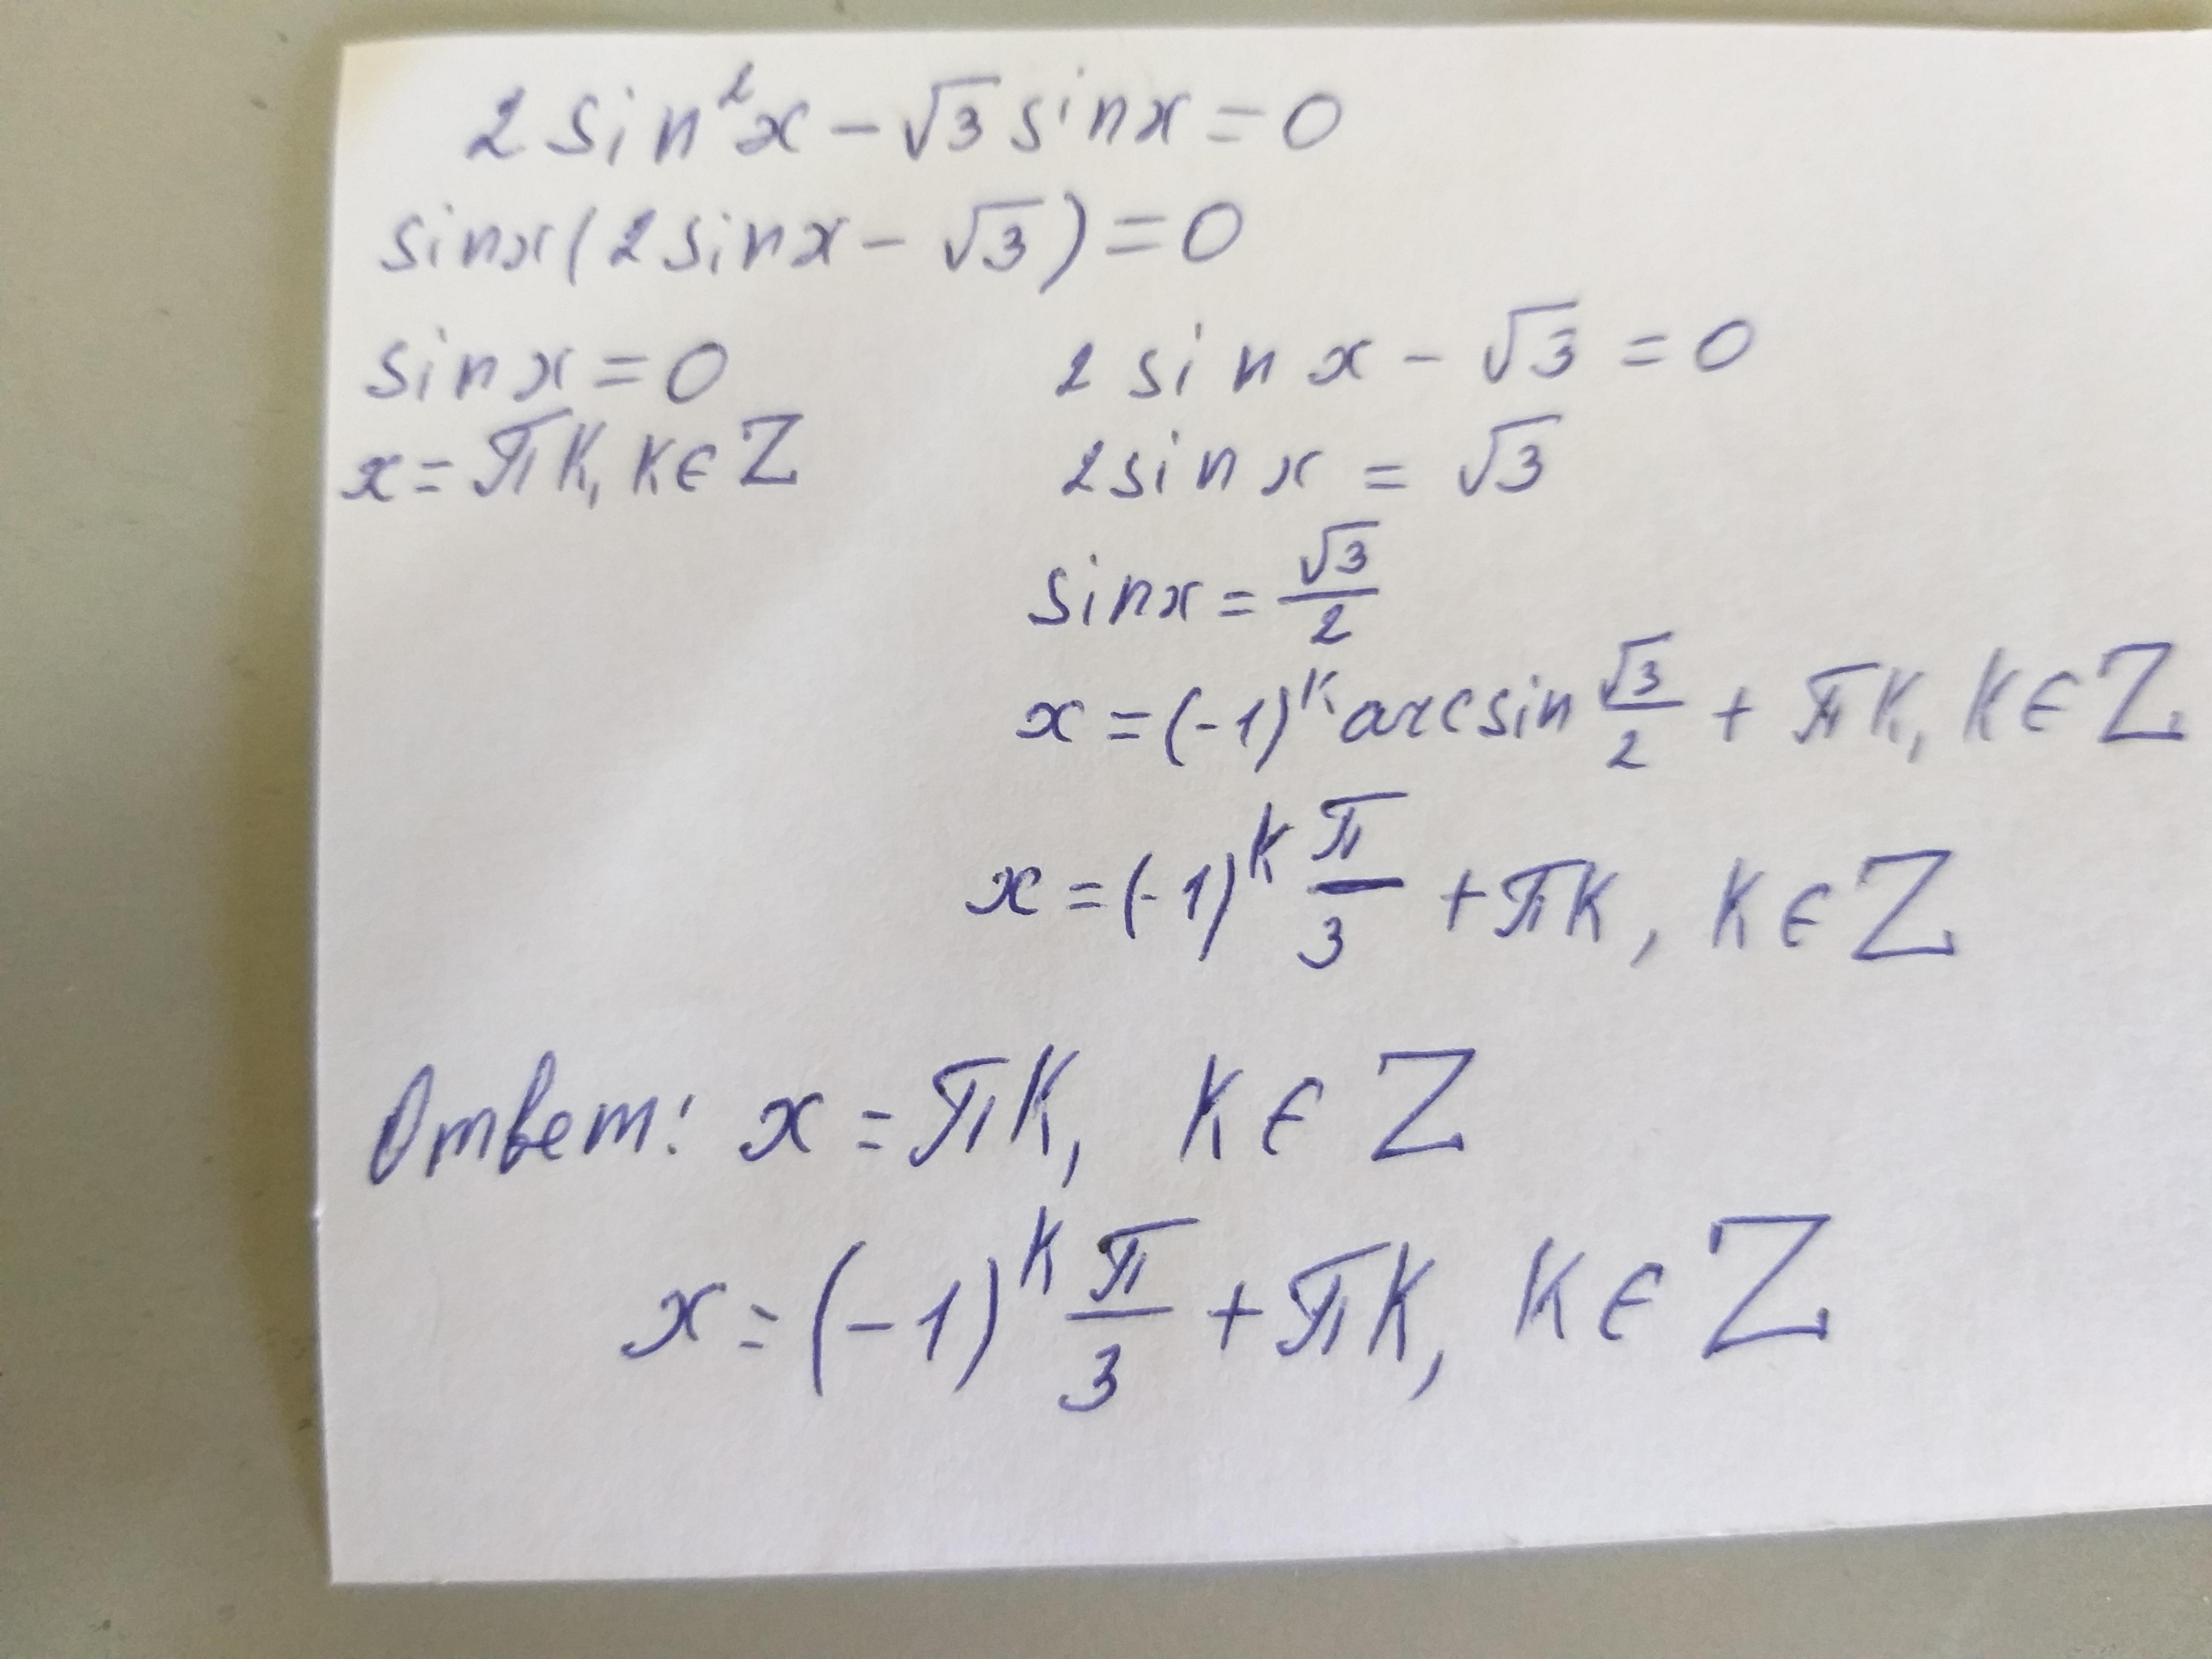 2 sin²x − √3 sinx = 0
sinx(2 sinx − √3) = 0
sinx = 0
x = πk, k ∈ Z
2 sin x − √3 = 0
2 sin x = √3
sinx = √3/2
x = (-1)^k arcsin √3/2 + πk, k ∈ Z
x = (-1)^k π/3 + πk, k ∈ Z
Ответ: x = πk, k ∈ Z
x = (-1)^k π/3 + πk, k ∈ Z